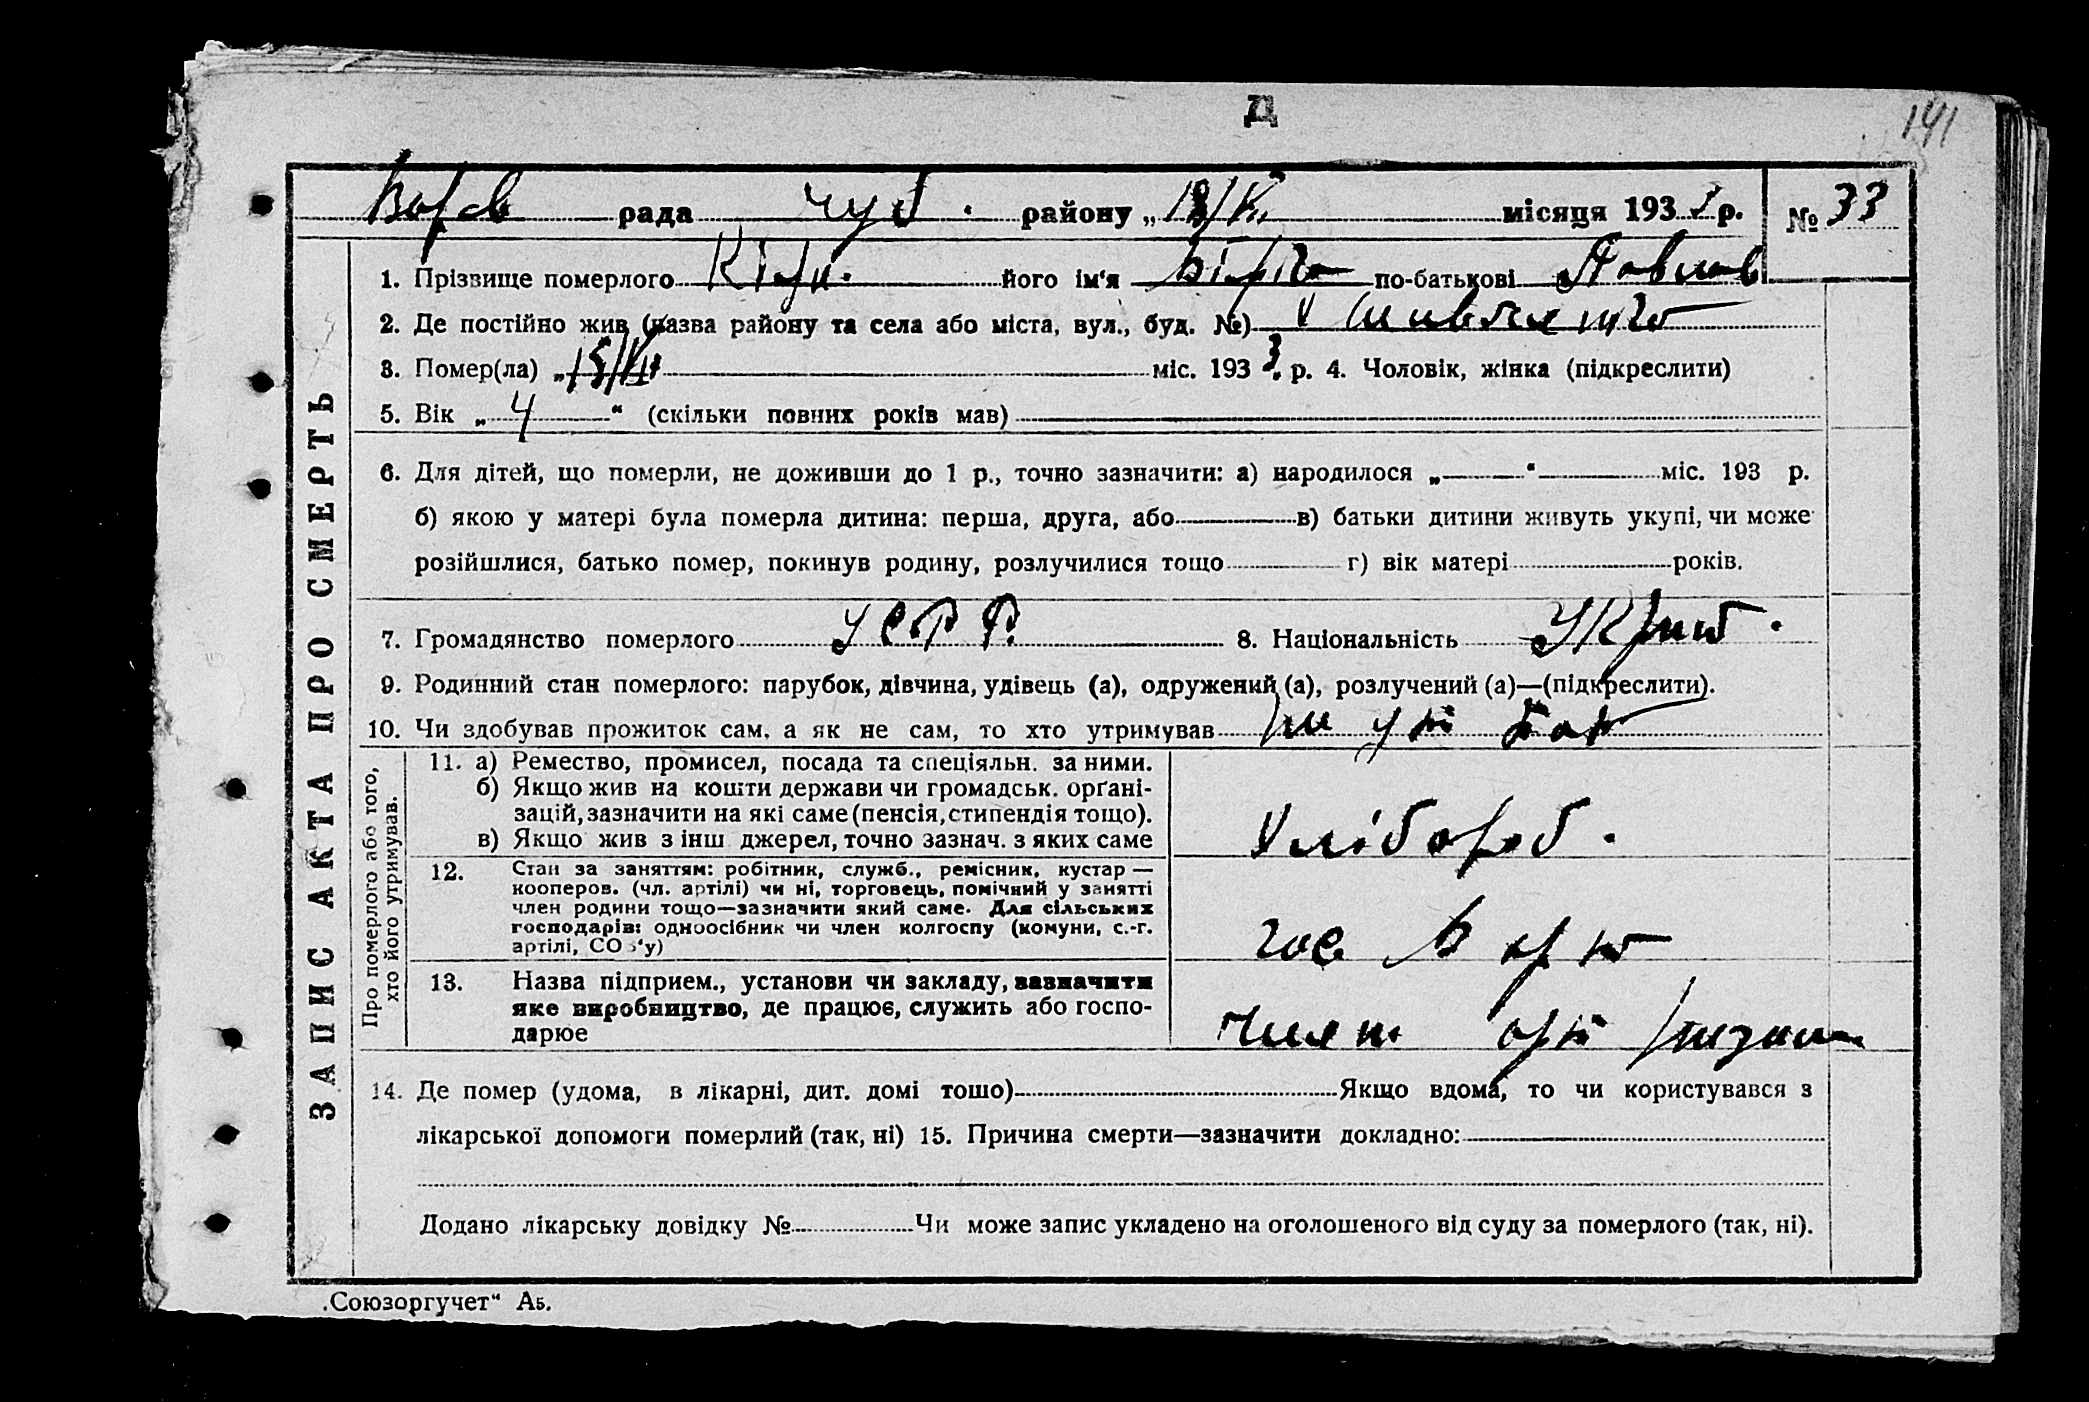 Д
141
рада чуб. району „ місяця 193 р. № 33
1. Прізвище померлого його ім‘я по-батькові Павлов
2. Де постійно жив (назва району та села або міста, вул., буд. №)
3. Помер(ла) „ міс. 1933 р. 4. Чоловік, жінка (підкреслити)
5. Вік „ 4 “ (скільки повних років мав)
6. Для дітей, що померли, не доживши до 1 р., точно зазначити: а) народилося „ “ міс. 193 р.
б) якою у матері була померла дитина: перша, друга, або в) батьки дитини живуть укупі, чи може
розійшлися, батько помер, покинув родину, розлучилися тощо г) вік матері років.
7. Громадянство померлого УСРР. 8. Національність
9. Родинний стан померлого: парубок, дівчина, удівець (а), одружений (а), розлучений (а)—(підкреслити).
10. Чи здобував прожиток сам, а як не сам, то хто утримував
ЗАПИС АКТА ПРО СМЕРТЬ
Про померлого або того,
хто його утримував.
11. а) Ремество, промисел, посада та спеціяльн. за ними.
б) Якщо жив на кошти держави чи громадськ. орґані-
зацій, зазначити на які саме (пенсія, стипендія тощо).
в) Якщо жив з інш джерел, точно зазнач. з яких саме
Хлібороб.
12. Стан за заняттям: робітник, служб., ремісник, кустар —
кооперов. (чл. артілі) чи ні, торговець, помічний у занятті
член родини тощо—зазначити який саме. Для сільських
господарів: одноосібник чи член колгоспу (комуни, с.-г.
артілі, СО з‘у)
13. Назва підприєм., установи чи закладу, зазначити
яке виробництво, де працює, служить або госпо-
дарює
14. Де помер (удома, в лікарні, дит. домі тошо) Якщо вдома, то чи користувався з
лікарської допомоги померлий (так, ні) 15. Причина смерти—зазначити докладно:
Додано лікарську довідку № Чи може запис укладено на оголошеного від суду за померлого (так, ні).
„Союзоргучет“ А5.